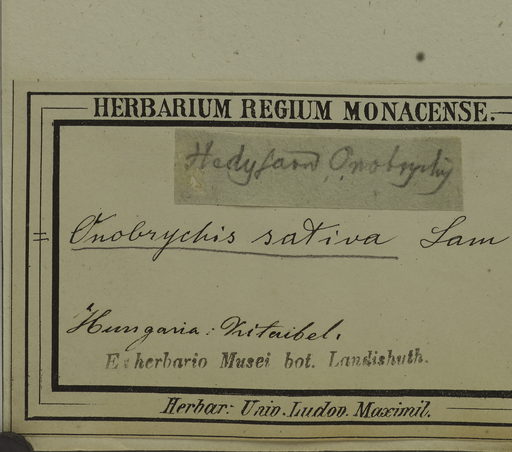 HERBARIUM REGIUM MONACENSE.
Hedysarū Onobrychis
= Onobrychis sativa Lam
Hungaria: Kitaibel.
Ex herbario Musei bot. Landishuth.
Herbar: Univ. Ludov. Maximil.